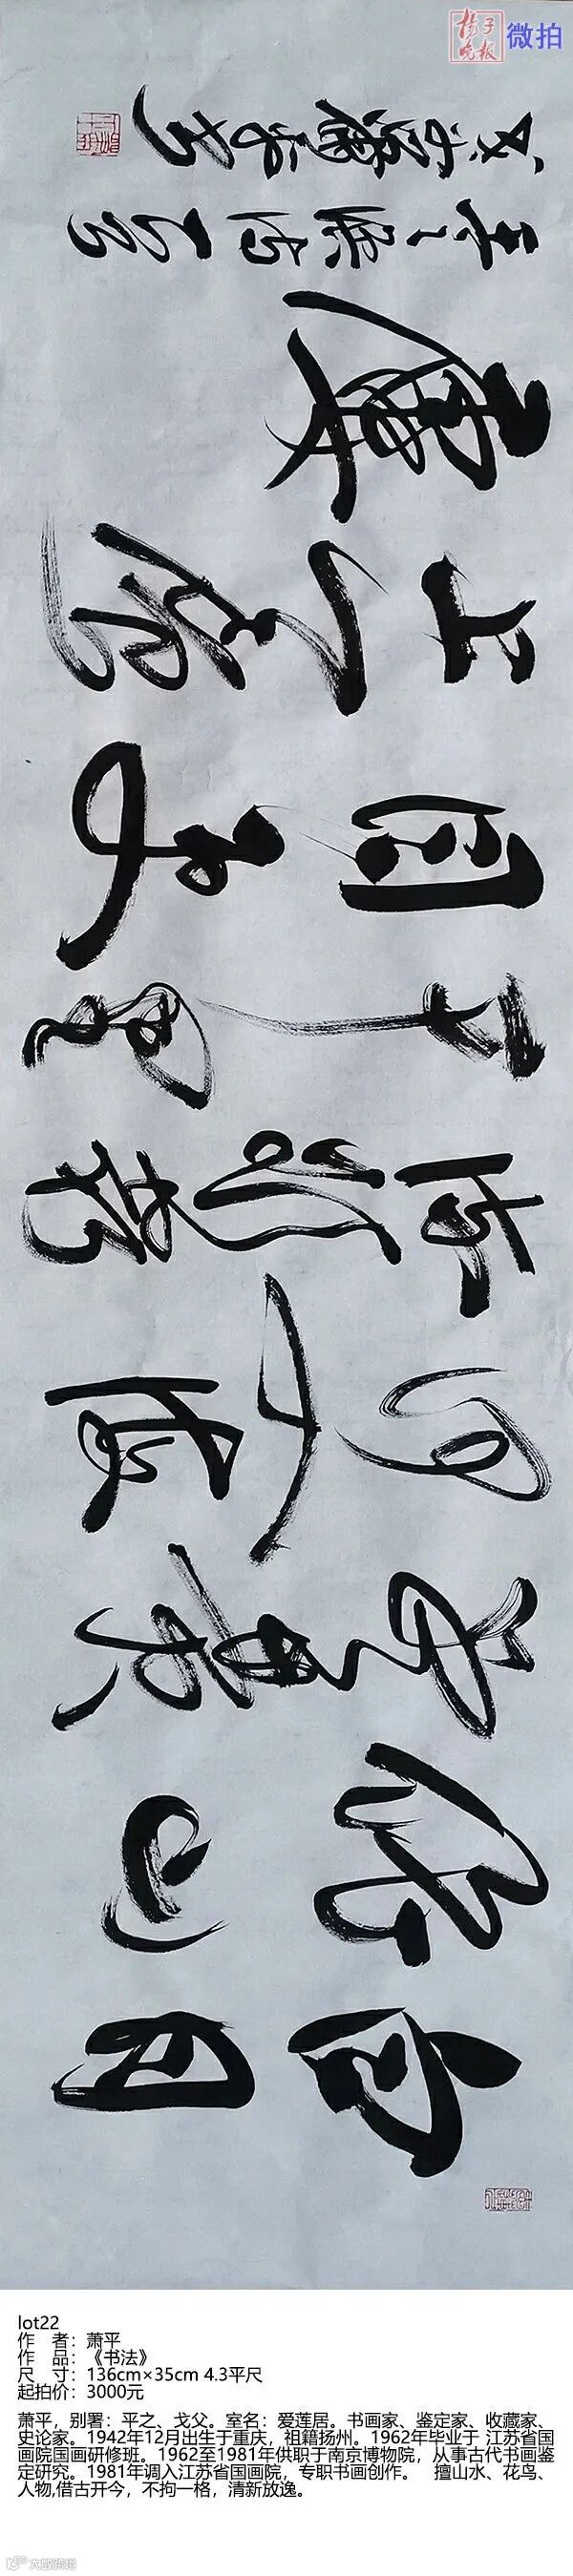 揚子晚报 微拍
白日
依山
盡黄
河入海
流欲窮
千里
目更
上一層
樓
王之渙詩
蕭平
lot22
作 者：萧平
作 品：《书法》
尺 寸：136cm×35cm 4.3平尺
起拍价：3000元
萧平，别署：平之、戈父。室名：爱莲居。书画家、鉴定家、收藏家、
史论家。1942年12月出生于重庆，祖籍扬州。1962年毕业于 江苏省国
画院国画研修班。1962至1981年供职于南京博物院，从事古代书画鉴
定研究。1981年调入江苏省国画院，专职书画创作。 擅山水、花鸟、
人物,借古开今，不拘一格，清新放逸。